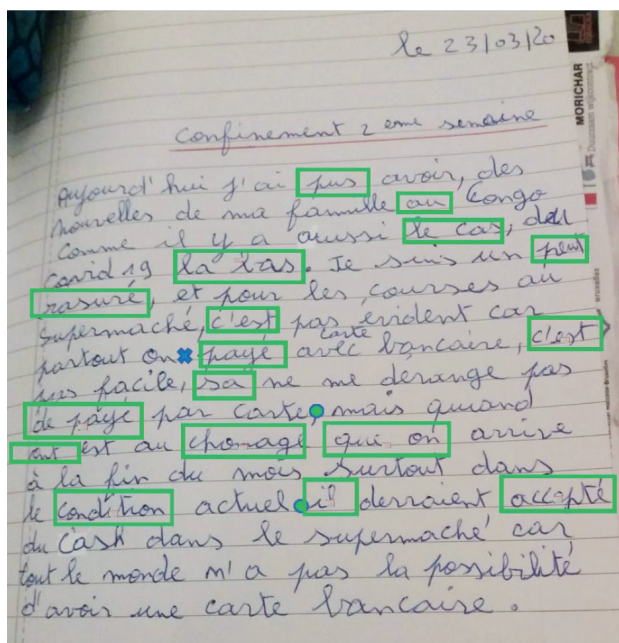 le 23/03/20
Confinement 2 eme semaine
Aujourd'hui j'ai pus avoir, des
nouvelles de ma famille au Congo
Comme il y a aussi le cas, du
Covid 19 la bas. Je suis un peut
rasuré, et pour les courses au
supermaché, c'est pas évident car
carte
partout on payé avec bancaire, c'est
pas facile, sa ne me dérange pas
de payé par carte, mais quand
ont est au chomage qui on arrive
à la fin du mois surtout dans
le condition actuel il devraient accepté
du cash dans le supermaché car
tout le monde n'a pas la possibilité
d'avoir une carte bancaire.
MORICHAR